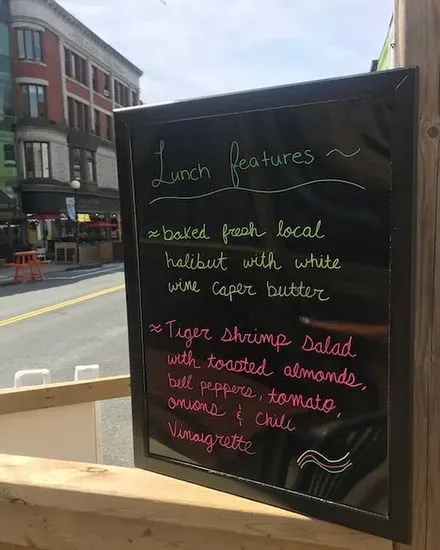 Lunch features ~
≈ baked fresh local
halibut with white
wine caper butter
≈ Tiger shrimp salad
with toasted almonds,
bell peppers, tomato,
onions & chili
Vinaigrette